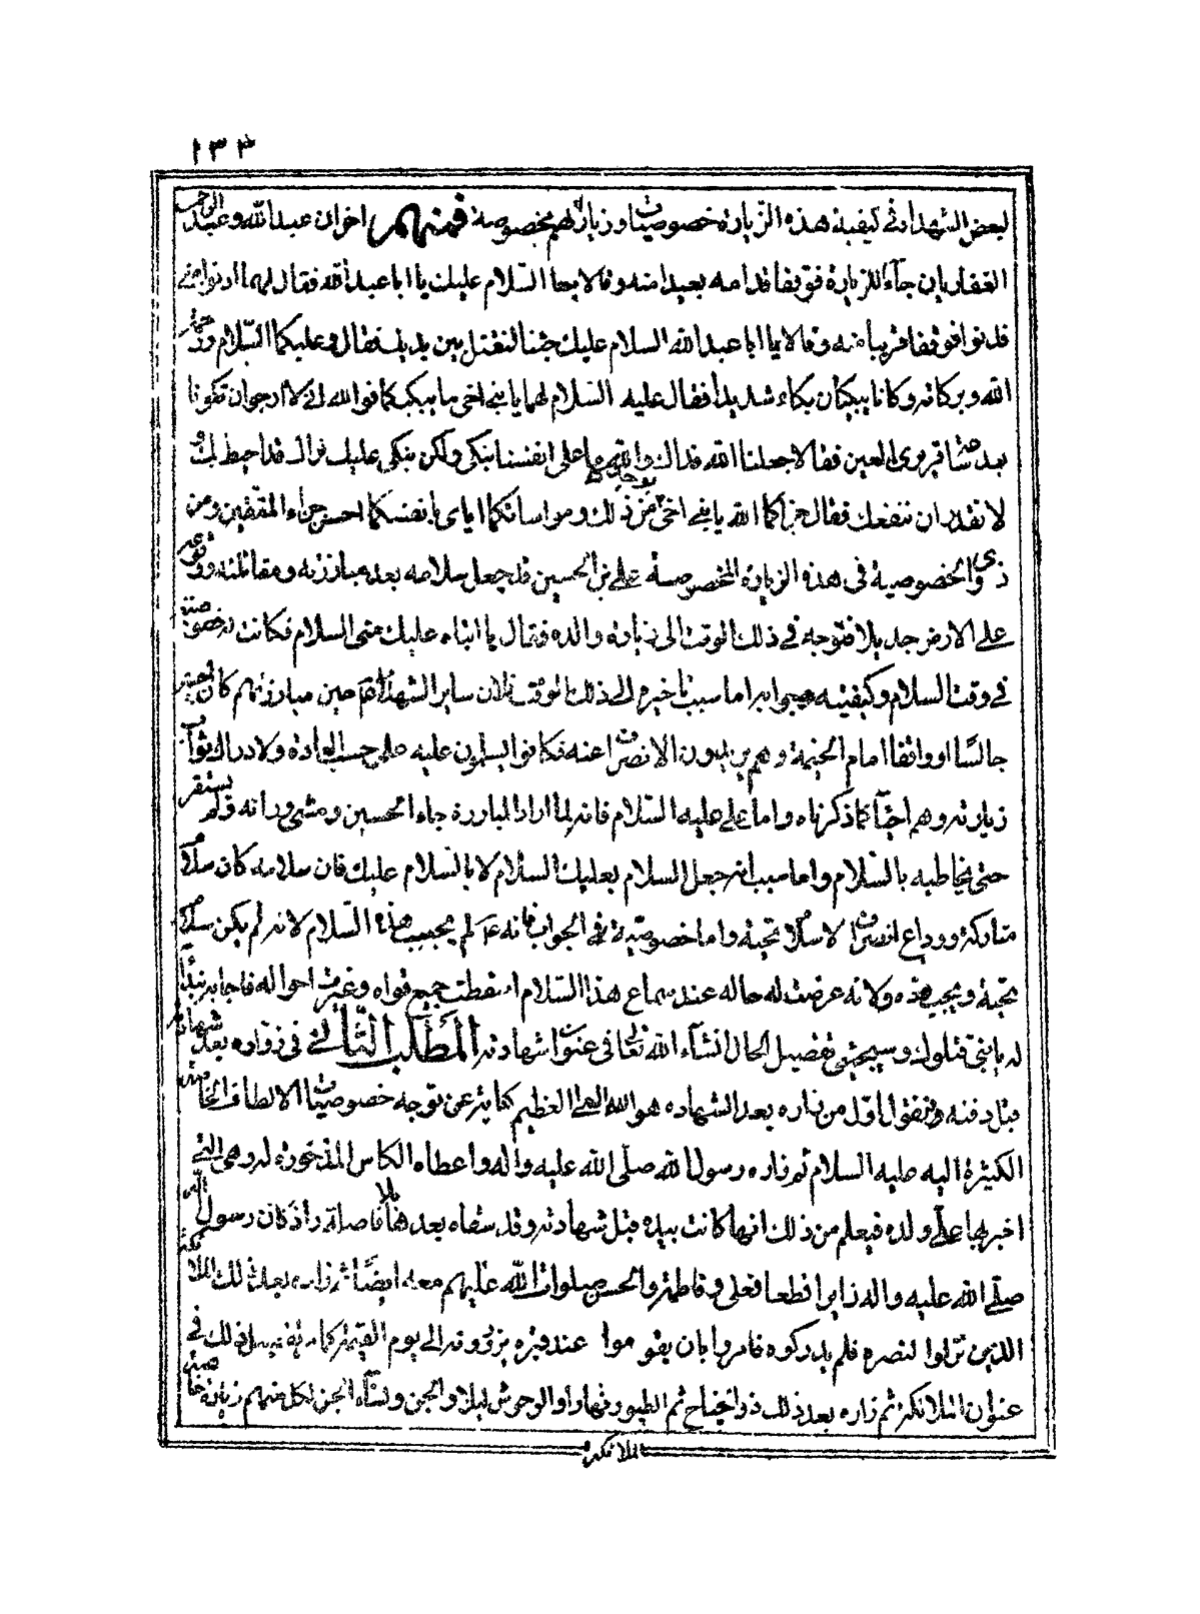 ١٣٣
لبعض الشهداء في كيفية هذه الزيارة خصوصيات او زيارة لهم مخصوصة فمنهم اخوان عبد الله وعبد الرحمن
الغفاريان جاءا للزيارة فوقفا قدامه بعيدا منه وقالا يعا السلام عليك يا ابا عبد الله فقال لهما ادنوا مني
فدنوا فوقفا قريبا منه وقالا يا ابا عبد الله السلام عليك جئنا لنقتل بين يديك فقال وعليكما السلام ورحمة
الله وبركاته وكانا يبكيان بكاء شديدا فقال عليه السلام لهما يا بني اخي ما يبكيكما فوالله اني لارجو ان تكونا
بعد ساعة قريري العين فقالا جعلنا الله فداك والله ما على انفسنا نبكي ولكن نبكي عليك نراك قد احيط بك
لا نقدر ان ننفعك فقال جزاكما الله يا بني اخي بوجدكما من ذلك ومواساتكما اياي بانفسكما احسن جزاء المتقين ومن
ذوي الخصوصية في هذه الزيارة المخصوصة علي بن الحسين قد جعل سلامه بعد مبارزته ومقاتلته ووقوعه
على الارض جديلا فتوجه في ذلك الوقت الى زيارة والده فقال يا ابتاه عليك مني السلام فكانت له خصوصية
في وقت السلام وكيفيته وجوابه اما سبب تاخيره الى ذلك الوقت فلان ساير الشهداء حين مبارزتهم كان الحسين
جالسا او واقفا امام الخيمة وهم يريدون الانصراف عنه فكانوا يسلمون عليه على حسب العادة ولادراك ثواب
زيارته وهم احياء كما ذكرناه واما علي عليه السلام فانه لما اراد المبارزة جاء الحسين ومشى ورائه ولم يستقر
حتى يخاطبه بالسلام واما سبب انه جعل السلام بعليك السلام لا بالسلام عليك فان سلامه كان سلام
متاركة ووداع انصراف لا سلام تحية واما خصوصية في الجواب فانه ع لم يجبه هذا السلام لانه لم يكن سلام
تحية ويجيب هذه ولانه عرضت له حاله عند سماع هذا السلام اسقطت جميع قواه وغيرت احواله فاجابه نبدا
له يا بني قتلوك وسيجيئ تفصيل الحال انشاء الله تعالى في عنوان شهادته المطلب الثاني في زواره بعد شهادته
قبل دفنه فنقول اول من زاره بعد الشهاده هو الله العلي العظيم كناية عن توجه خصوصيات الالطاف الخاصة
الكثيرة اليه عليه السلام ثم زاره رسول الله صلى الله عليه واله واعطاه الكاس المذخورة له وهي التي
اخبر بها علي ولده فيعلم من ذلك انها كانت بيده قبل شهادته وقد سقاه بعدها بلا فاصلة واذ كان رسول الله
صلى الله عليه واله زايرا قطعا فعلي وفاطمة والحسن صلوات الله عليهم معه ايضا ثم زاره بعد ذلك الملائكة
الذين نزلوا لنصره فلم يدركوه فامروا بان يقوموا عند قبره يزورونه الى يوم القيمة كما في ذلك في
عنوان الملائكة ثم زاره بعد ذلك ذو الجناح ثم الطيور نهارا والوحوش ليلا والجن ونساء الجن لكل منهم زيارة خاصة
الملائكة